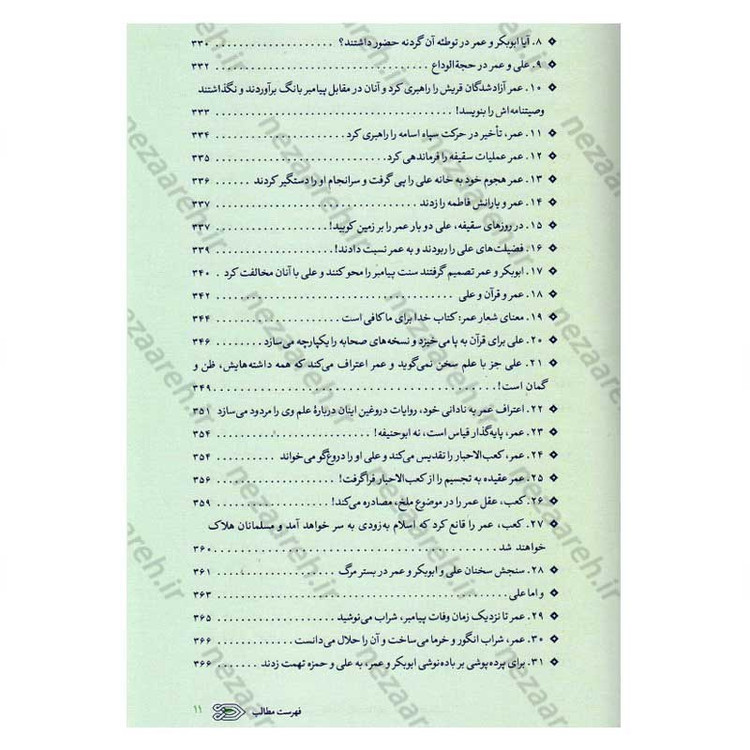 ۸. آیا ابوبکر و عمر در توطئه آن گردنه حضور داشتند؟ . . . . . . . . . . . . . . . . ۳۳۰
۹. علی و عمر در حجةالوداع . . . . . . . . . . . . . . . . ۳۳۲
۱۰. عمر آزادشدگان قریش را راهبری کرد و آنان در مقابل پیامبر بانگ برآوردند و نگذاشتند
وصیتنامه‌اش را بنویسد! . . . . . . . . . . . . . . . . ۳۳۳
۱۱. عمر، تأخیر در حرکت سپاه اسامه را راهبری کرد . . . . . . . . . . . . . . . . ۳۳۴
۱۲. عمر عملیات سقیفه را فرماندهی کرد . . . . . . . . . . . . . . . . ۳۳۵
۱۳. عمر هجوم خود به خانه علی را پی گرفت و سرانجام او را دستگیر کردند . . . . . . ۳۳۶
۱۴. عمر و یارانش فاطمه را زدند . . . . . . . . . . . . . . . . ۳۳۷
۱۵. در روزهای سقیفه، علی دو بار عمر را بر زمین کوبید! . . . . . . . . . . . . . . . . ۳۳۷
۱۶. فضیلت‌های علی را ربودند و به عمر نسبت دادند! . . . . . . . . . . . . . . . . ۳۳۹
۱۷. ابوبکر و عمر تصمیم گرفتند سنت پیامبر را محو کنند و علی با آنان مخالفت کرد . ۳۴۰
۱۸. عمر و قرآن و علی . . . . . . . . . . . . . . . . ۳۴۲
۱۹. معنای شعار عمر: کتاب خدا برای ما کافی است . . . . . . . . . . . . . . . . ۳۴۴
۲۰. علی برای قرآن به پا می‌خیزد و نسخه‌های صحابه را یکپارچه می‌سازد . . . . . . ۳۴۶
۲۱. علی جز با علم سخن نمی‌گوید و عمر اعتراف می‌کند که همه داشته‌هایش، ظن و
گمان است! . . . . . . . . . . . . . . . . ۳۴۹
۲۲. اعتراف عمر به نادانی خود، روایات دروغین اینان دربارهٔ علم وی را مردود می‌سازد ۳۵۱
۲۳. عمر، پایه‌گذار قیاس است، نه ابوحنیفه! . . . . . . . . . . . . . . . . ۳۵۴
۲۴. عمر، کعب‌الاحبار را تقدیس می‌کند و علی او را دروغ‌گو می‌خواند . . . . . . . . ۳۵۴
۲۵. عمر عقیده به تجسیم را از کعب‌الاحبار فراگرفت! . . . . . . . . . . . . . . . . ۳۵۶
۲۶. کعب، عقل عمر را در موضوع ملخ، مصادره می‌کند! . . . . . . . . . . . . . . . . ۳۵۹
۲۷. کعب، عمر را قانع کرد که اسلام به‌زودی به سر خواهد آمد و مسلمانان هلاک
خواهند شد . . . . . . . . . . . . . . . . ۳۶۰
۲۸. سنجش سخنان علی و ابوبکر و عمر در بستر مرگ . . . . . . . . . . . . . . . . ۳۶۱
و اما علی . . . . . . . . . . . . . . . . ۳۶۳
۲۹. عمر تا نزدیک زمان وفات پیامبر، شراب می‌نوشید . . . . . . . . . . . . . . . . ۳۶۵
۳۰. عمر، شراب انگور و خرما می‌ساخت و آن را حلال می‌دانست . . . . . . . . . . . ۳۶۶
۳۱. برای پرده‌پوشی بر باده‌نوشی ابوبکر و عمر، به علی و حمزه تهمت زدند . . . . . . ۳۶۶
فهرست مطالب ۱۱
nezaareh.ir